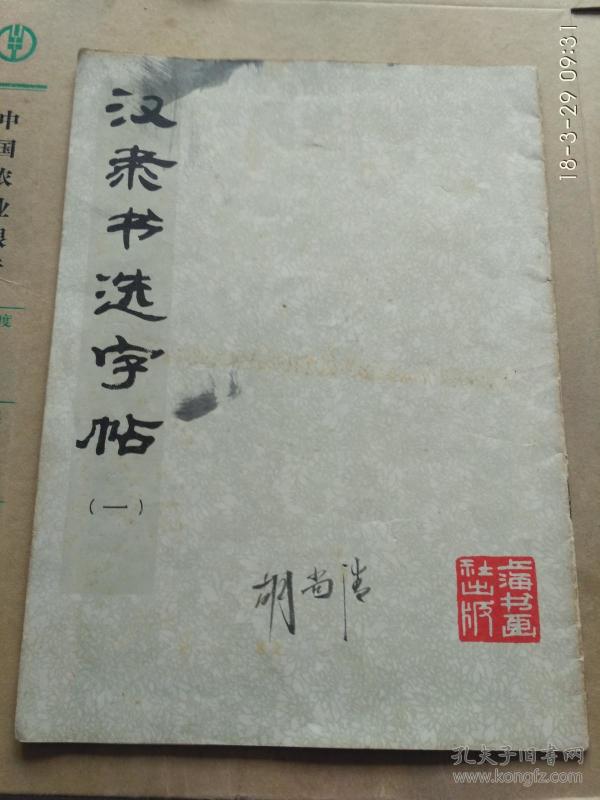 汉隶书选字帖
(一)
胡尚清
上海书画
社出版
中国农业银
度
18-3-29 09:31
孔夫子旧书网
www.kongfz.com